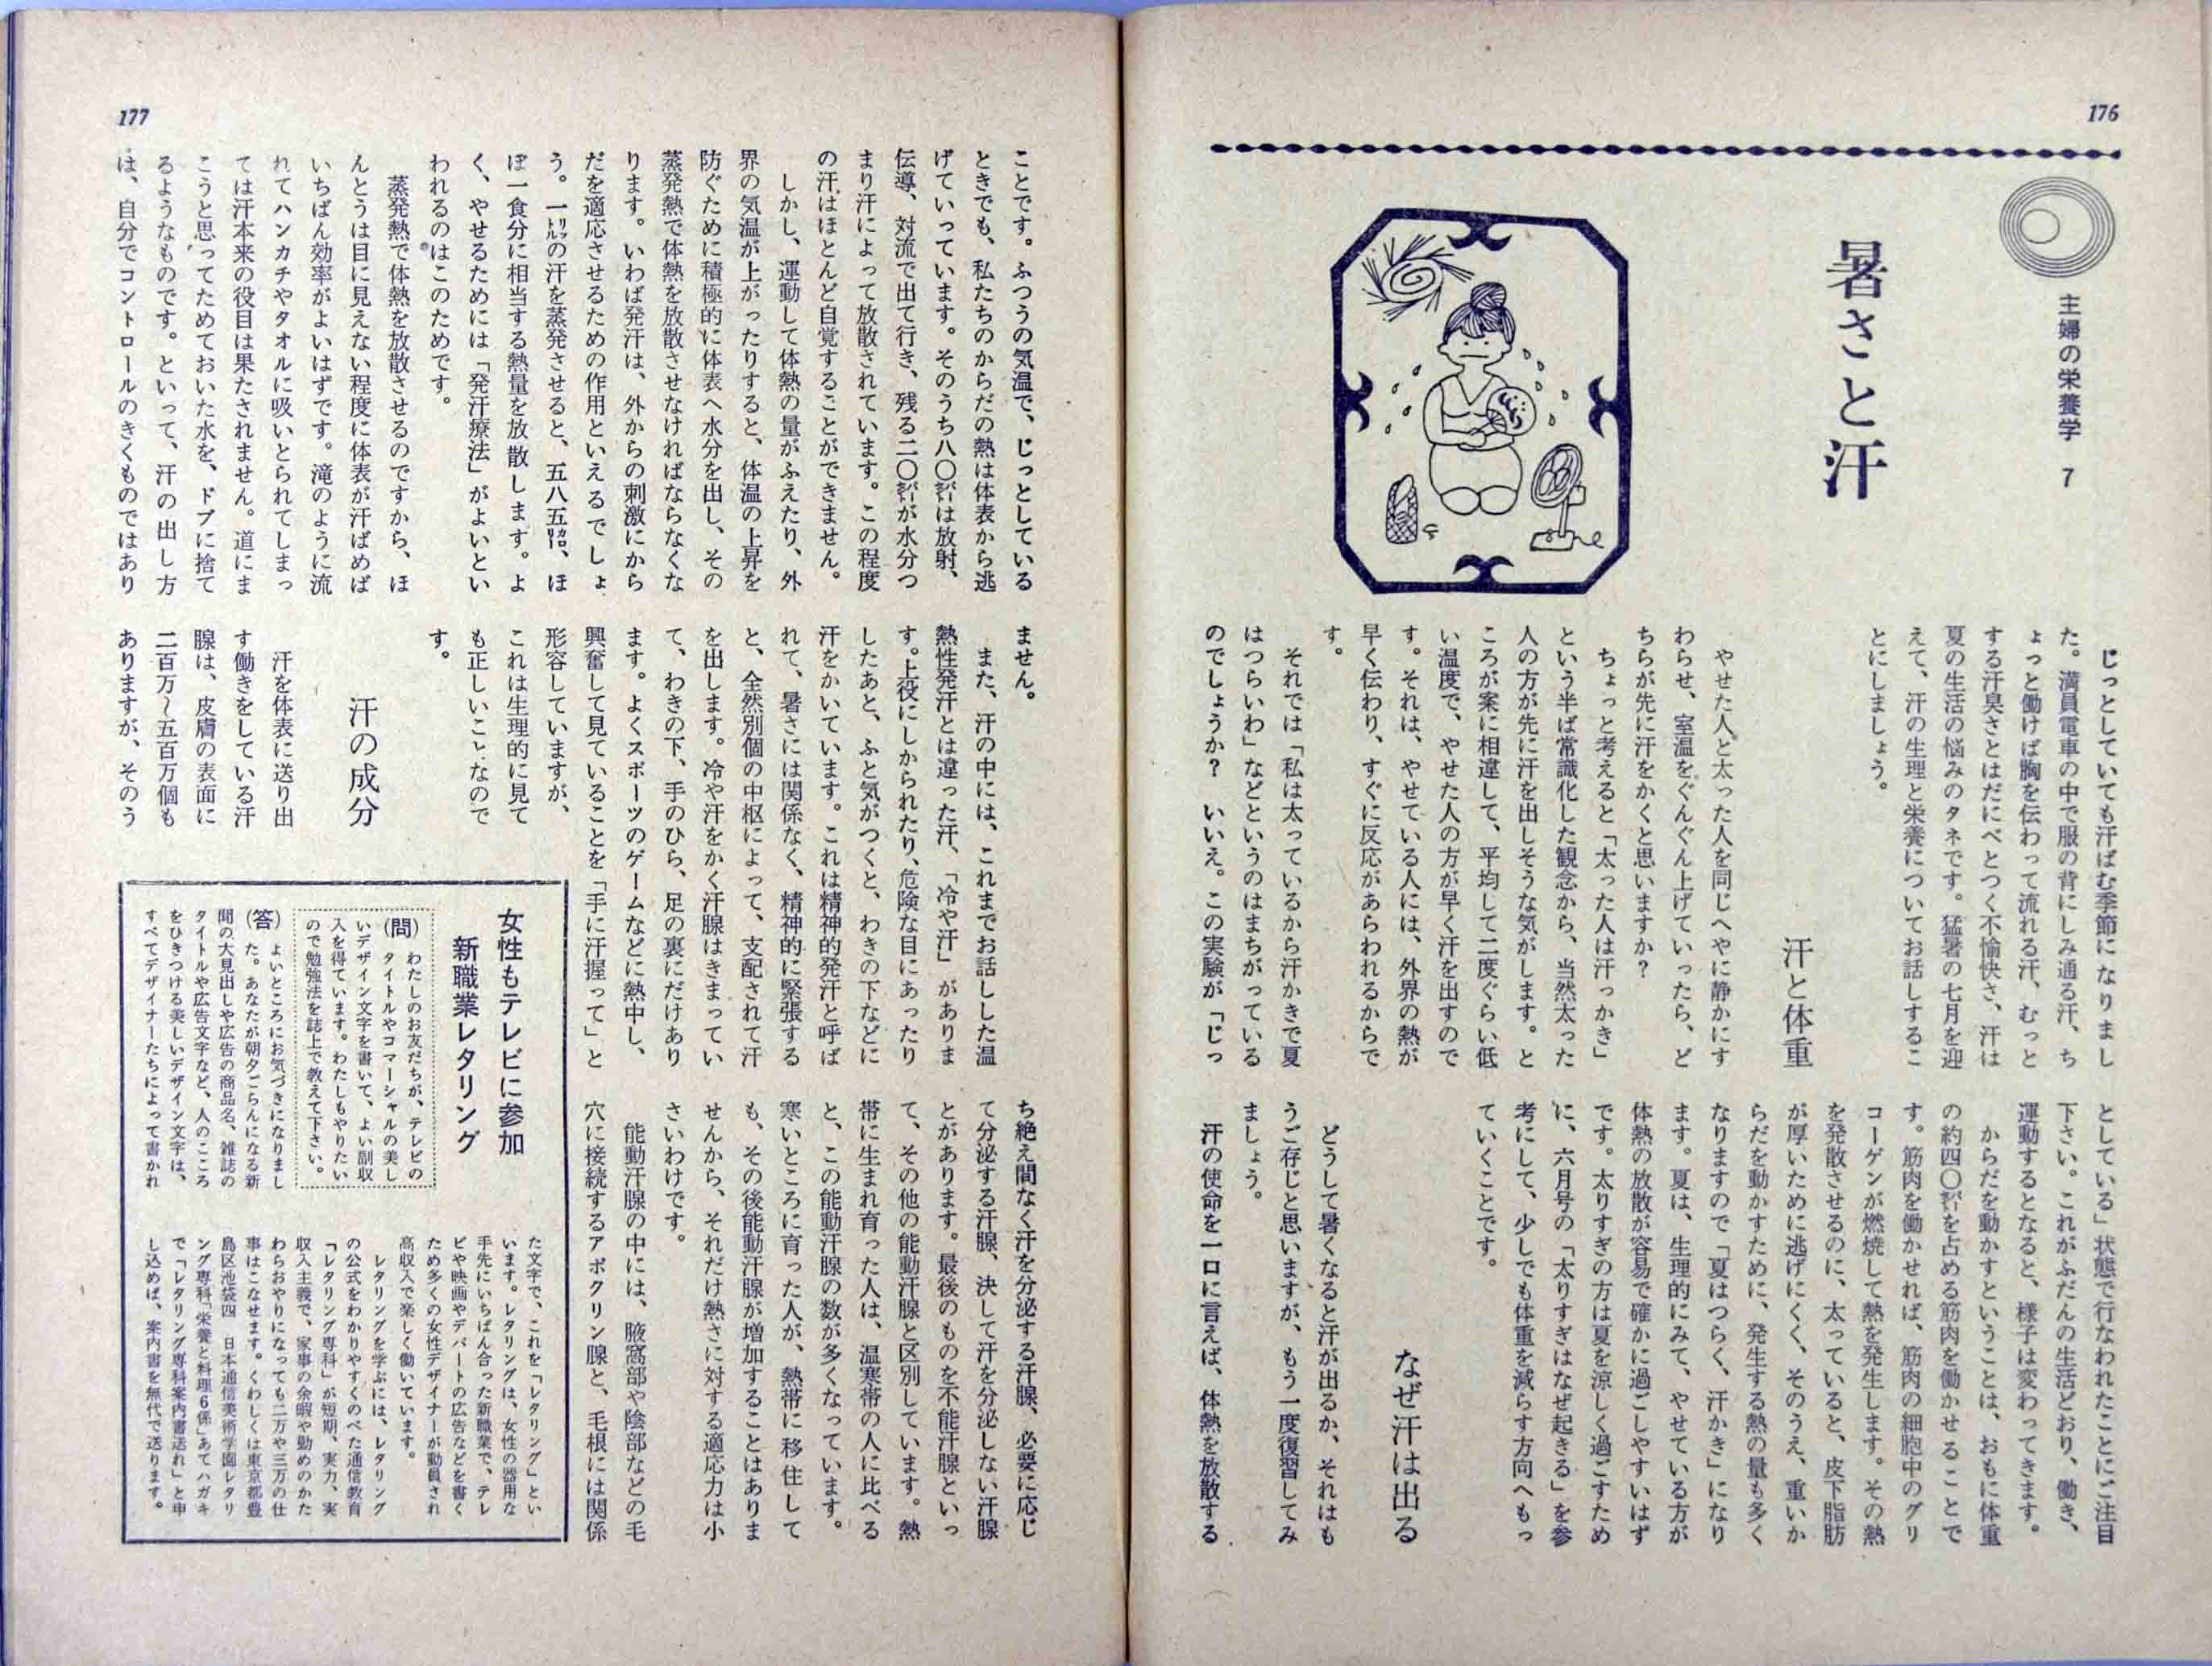 176
主婦の栄養学 7
暑さと汗
じっとしていても汗ばむ季節になりまし
た。満員電車の中で服の背にしみ通る汗、ち
ょっと働けば胸を伝わって流れる汗、むっと
する汗臭さとはだにべとつく不愉快さ、汗は
夏の生活の悩みのタネです。猛暑の七月を迎
えて、汗の生理と栄養についてお話しするこ
とにしましょう。
汗と体重
やせた人と太った人を同じへやに静かにす
わらせ、室温をぐんぐん上げていったら、ど
ちらが先に汗をかくと思いますか?
ちょっと考えると「太った人は汗っかき」
という半ば常識化した観念から、当然太った
人の方が先に汗を出しそうな気がします。と
ころが案に相違して、平均して二度ぐらい低
い温度で、やせた人の方が早く汗を出すので
す。それは、やせている人には、外界の熱が
早く伝わり、すぐに反応があらわれるからで
す。
それでは「私は太っているから汗かきで夏
はつらいわ」などというのはまちがっている
のでしょうか? いいえ。この実験が「じっ
としている」状態で行なわれたことにご注目
下さい。これがふだんの生活どおり、働き、
運動するとなると、様子は変わってきます。
からだを動かすということは、おもに体重
の約四〇㌫を占める筋肉を働かせることで
す。筋肉を働かせれば、筋肉の細胞中のグリ
コーゲンが燃焼して熱を発生します。その熱
を発散させるのに、太っていると、皮下脂肪
が厚いために逃げにくく、そのうえ、重いか
らだを動かすために、発生する熱の量も多く
なりますので「夏はつらく、汗かき」になり
ます。夏は、生理的にみて、やせている方が
体熱の放散が容易で確かに過ごしやすいはず
です。太りすぎの方は夏を涼しく過ごすため
に、六月号の「太りすぎはなぜ起きる」を参
考にして、少しでも体重を減らす方向へもっ
ていくことです。
なぜ汗は出る
どうして暑くなると汗が出るか、それはも
うご存じと思いますが、もう一度復習してみ
ましょう。
汗の使命を一口に言えば、体熱を放散する
177
ことです。ふつうの気温で、じっとしている
ときでも、私たちのからだの熱は体表から逃
げていっています。そのうち八〇㌫は放射、
伝導、対流で出て行き、残る二〇㌫が水分つ
まり汗によって放散されています。この程度
の汗はほとんど自覚することができません。
しかし、運動して体熱の量がふえたり、外
界の気温が上がったりすると、体温の上昇を
防ぐために積極的に体表へ水分を出し、その
蒸発熱で体熱を放散させなければならなくな
ります。いわば発汗は、外からの刺激にから
だを適応させるための作用といえるでしょ
う。一㍑の汗を蒸発させると、五八五㌍、ほ
ぼ一食分に相当する熱量を放散します。よ
く、やせるためには「発汗療法」がよいとい
われるのはこのためです。
蒸発熱で体熱を放散させるのですから、ほ
んとうは目に見えない程度に体表が汗ばめば
いちばん効率がよいはずです。滝のように流
れてハンカチやタオルに吸いとられてしまっ
ては汗本来の役目は果たされません。道にま
こうと思ってためておいた水を、ドブに捨て
るようなものです。といって、汗の出し方
は、自分でコントロールのきくものではあり
ません。
また、汗の中には、これまでお話しした温
熱性発汗とは違った汗、「冷や汗」がありま
す。上役にしかられたり、危険な目にあったり
したあと、ふと気がつくと、わきの下などに
汗をかいています。これは精神的発汗と呼ば
れて、暑さには関係なく、精神的に緊張する
と、全然別個の中枢によって、支配されて汗
を出します。冷や汗をかく汗腺はきまってい
て、わきの下、手のひら、足の裏にだけあり
ます。よくスポーツのゲームなどに熱中し、
興奮して見ていることを「手に汗握って」と
形容していますが、
これは生理的に見て
も正しいことなので
す。
汗の成分
汗を体表に送り出
す働きをしている汗
腺は、皮膚の表面に
二百万~五百万個も
ありますが、そのう
ち絶え間なく汗を分泌する汗腺、必要に応じ
て分泌する汗腺、決して汗を分泌しない汗腺
とがあります。最後のものを不能汗腺といっ
て、その他の能動汗腺と区別しています。熱
帯に生まれ育った人は、温寒帯の人に比べる
と、この能動汗腺の数が多くなっています。
寒いところに育った人が、熱帯に移住して
も、その後能動汗腺が増加することはありま
せんから、それだけ熱さに対する適応力は小
さいわけです。
能動汗腺の中には、腋窩部や陰部などの毛
穴に接続するアポクリン腺と、毛根には関係
女性もテレビに参加
新職業レタリング
(問) わたしのお友だちが、テレビの
タイトルやコマーシャルの美し
いデザイン文字を書いて、よい副収
入を得ています。わたしもやりたい
ので勉強法を誌上で教えて下さい。
(答) よいところにお気づきになりまし
た。あなたが朝夕ごらんになる新
聞の大見出しや広告の商品名、雑誌の
タイトルや広告文字など、人のこころ
をひきつける美しいデザイン文字は、
すべてデザイナーたちによって書かれ
た文字で、これを「レタリング」とい
います。レタリングは、女性の器用な
手先にいちばん合った新職業で、テレ
ビや映画やデパートの広告などを書く
ため多くの女性デザイナーが動員され
高収入で楽しく働いています。
レタリングを学ぶには、レタリング
の公式をわかりやすくのべた通信教育
「レタリング専科」が短期、実力、実
収入主義で、家事の余暇や勤めのかた
わらおやりになっても二万や三万の仕
事はこなせます。くわしくは東京都豊
島区池袋四 日本通信美術学園レタリ
ング専科「栄養と料理6係」あてハガキ
で「レタリング専科案内書送れ」と申
し込めば、案内書を無代で送ります。